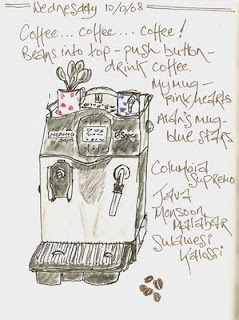 Wednesday 10/12/08
Coffee... coffee.... coffee!
Beans into top - push button -
drink coffee.
My mug -
pink hearts
Alan's mug -
blue stars
Columbia
Supremo
Java
Monsoon
Malabar
Sulawesi
Kalossi